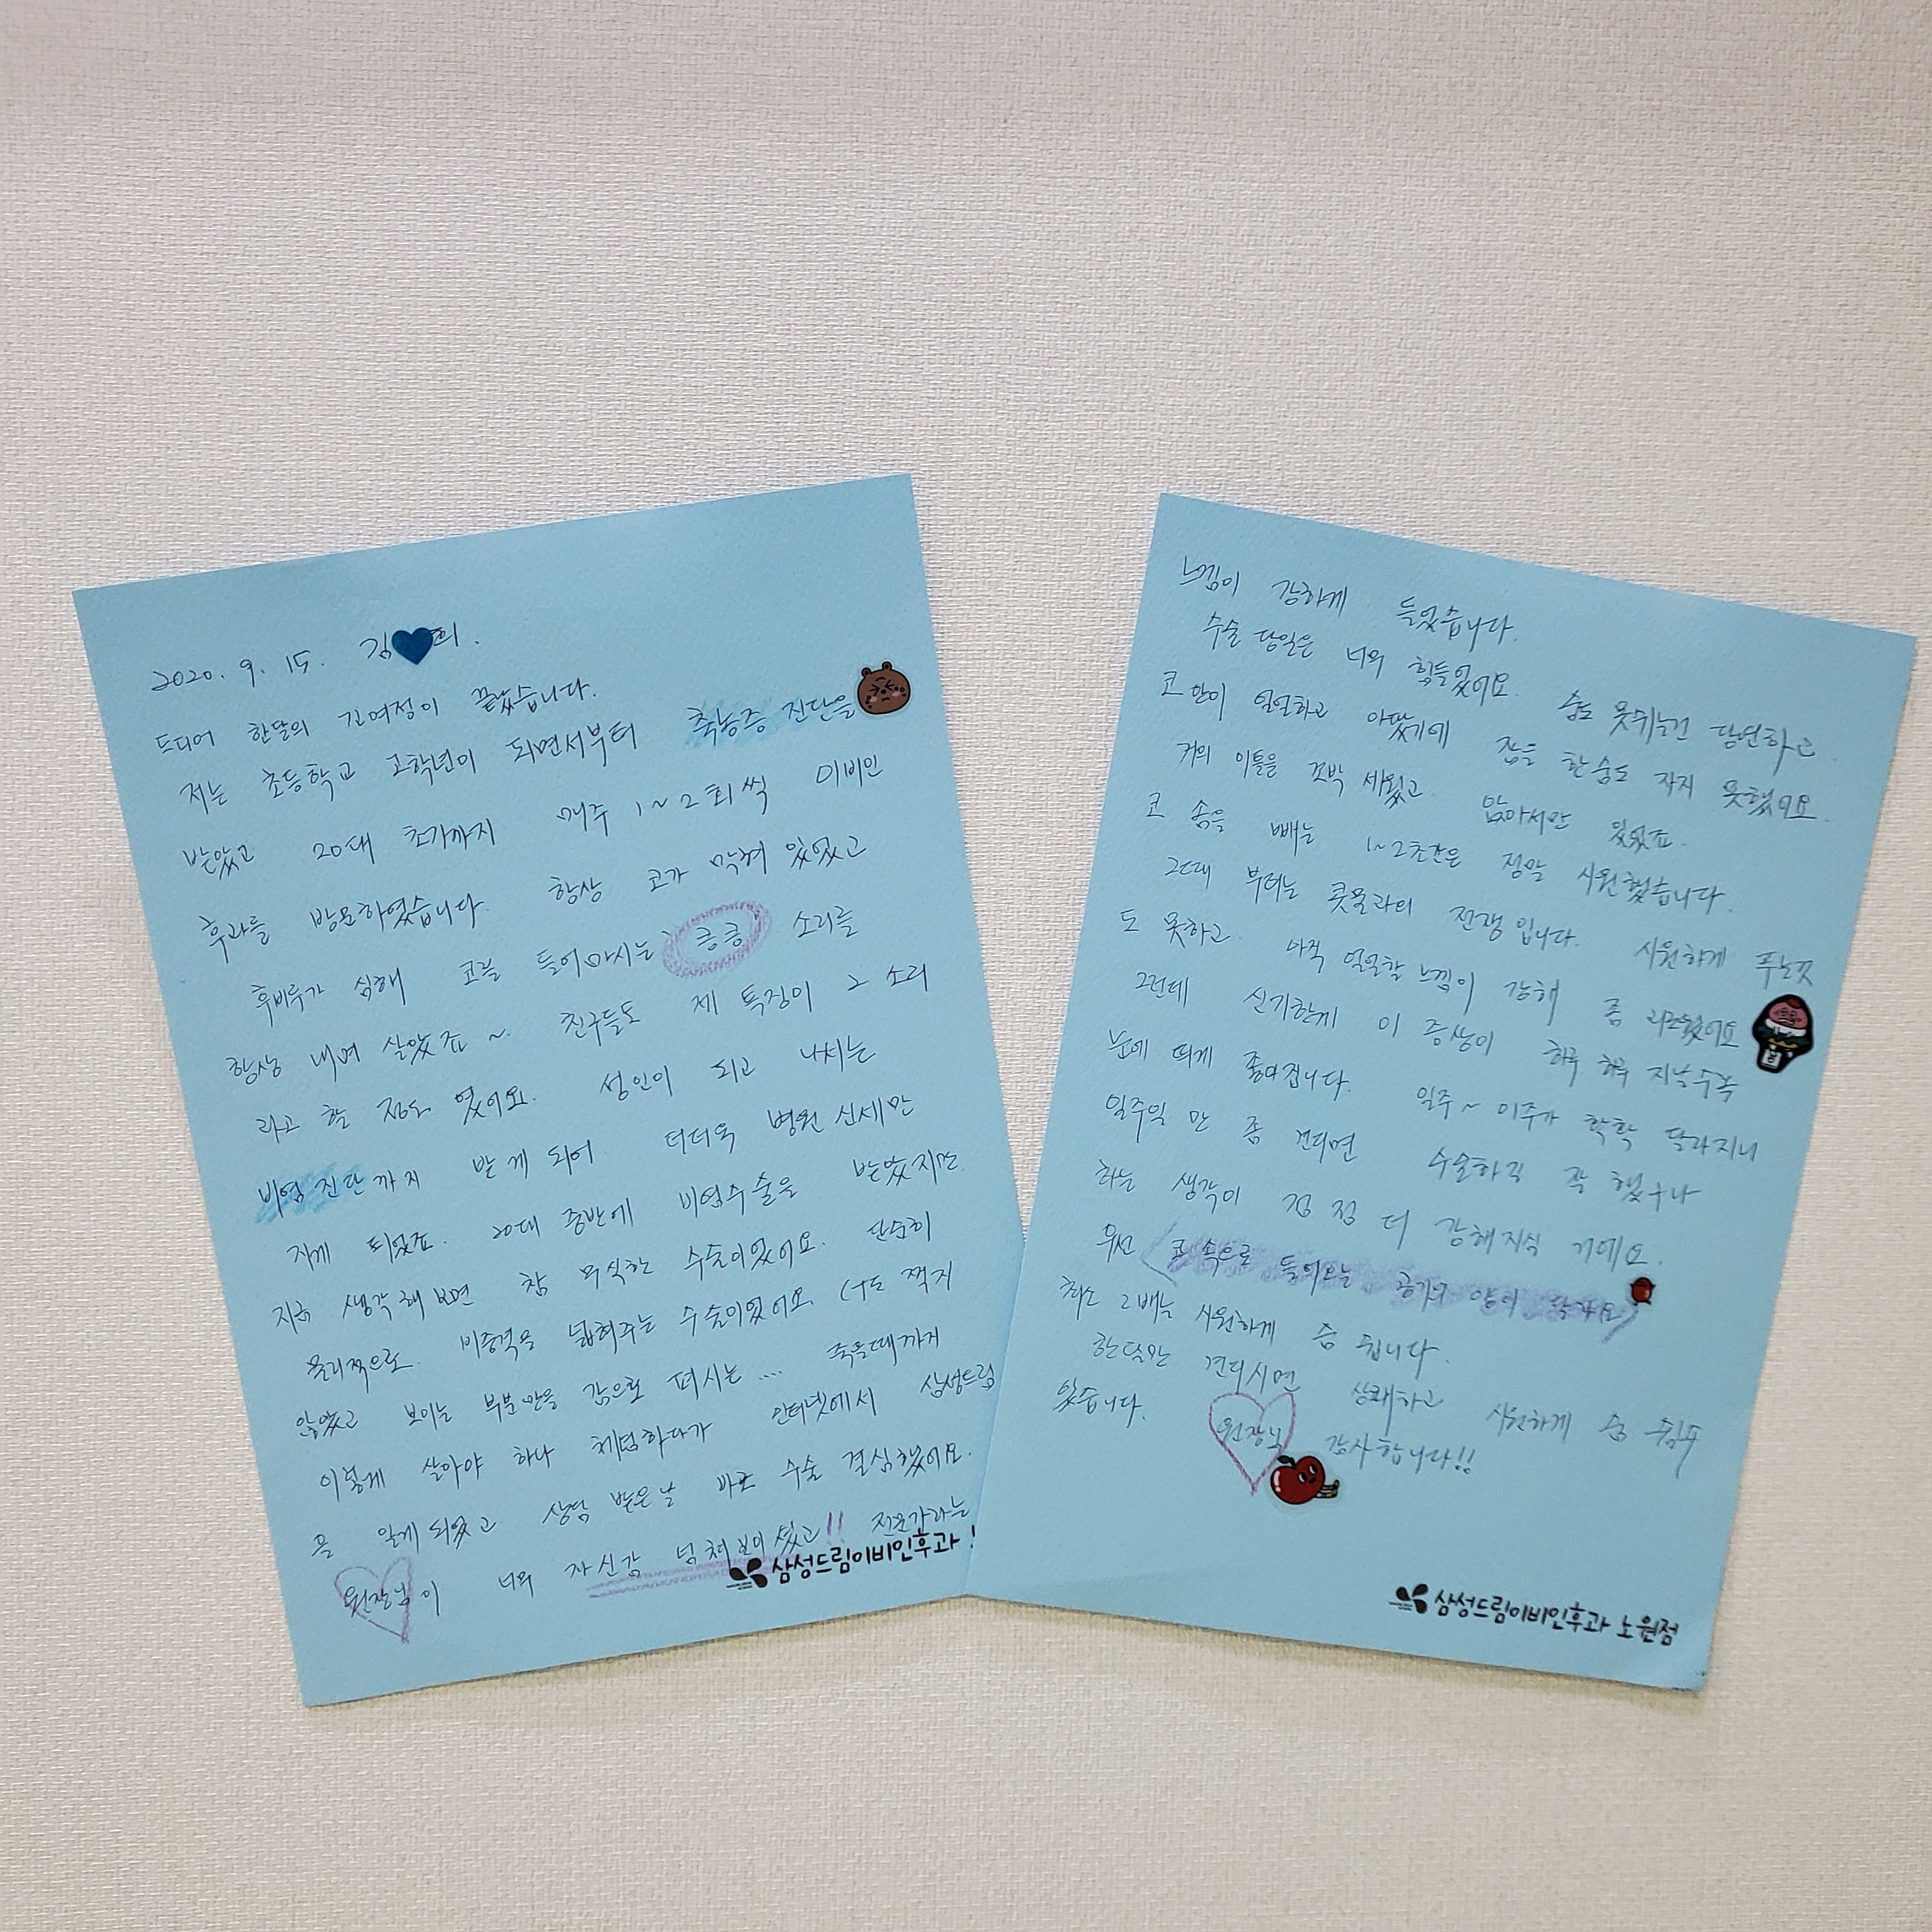 2020. 9. 15. 김 희.
드디어 한달의 긴여정이 끝났습니다.
저는 초등학교 고학년이 되면서부터 축농증 진단을
받았고 20대 초가까지 매주 1~2회씩 이비인
후과를 방문하였습니다. 항상 코가 막혀 있었고
후비루가 심해 코를 들어마시는 킁킁 소리를
항상 내며 살았죠~. 친구들도 제 특징이 그 소리
라고 할 정도 였어요. 성인이 되고 나서는
비염 진단까지 받게 되어 더더욱 병원 신세만
지게 되었죠. 20대 중반에 비염수술을 받았지만
지금 생각해보면 참 무식한 수술이었어요. 단순히
물리적으로 비중격을 넓혀주는 수술이었어요. 찍지
않았고 보이는 부분만을 감으로 펴시는.... 죽을때까지
이렇게 살아야 하나 체념하다가 인터넷에서 삼성드림
을 알게되었고 상담 받은날 바로 수술 결심했어요.
원장님이 너무 자신감 넘쳐보이셨고!! 전문가라는
삼성드림이비인후과
느낌이 강하게 들었습니다.
수술 당일은 너무 힘들었어요. 숨도 못쉬는건 당연하고
코안이 얼얼하고 아팠기에 잠을 한숨도 자지 못했어요.
거의 이틀을 꼬박 세웠고 앉아서만 있었죠.
코 솜을 빼는 1~2초간은 정말 시원했습니다.
그때 부터는 콧물과의 전쟁입니다. 시원하게 푸는것
도 못하고. 아직 얼얼할 느낌이 강해 좀 괴로웠어요
그런데 신기한게 이 증상이 하루 하루 지날수록
눈에 띄게 좋아집니다. 일주~이주가 확확 달라지니
일주일 만 좀 견디면 수술하길 잘 했구나
하는 생각이 점 점 더 강해지실 거에요.
우선 코 속으로 들어오는 공기의 양이 달라요
최소 2배는 시원하게 숨 쉽니다.
한달만 견디시면 상쾌하고 시원하게 숨 쉴수
있습니다. 원장님 감사합니다!!
삼성드림이비인후과 노원점